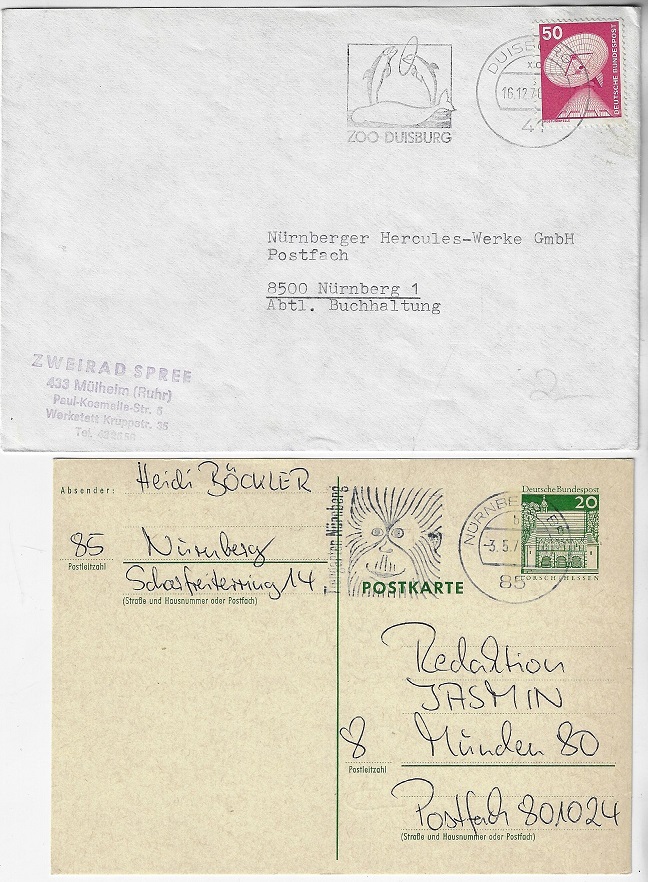 ZOO DUISBURG
16.12.7
41
50
DEUTSCHE BUNDESPOST
Nürnberger Hercules-Werke GmbH
Postfach
8500 Nürnberg 1
Abtl. Buchhaltung
ZWEIRAD SPREE
433 Mülheim (Ruhr)
Paul-Kosmalla-Str. 5
Werkstatt Kruppstr. 35
Tel.
Absender: Heidi BÖCKLER
85 Nürnberg
Postleitzahl
Scharfreiterring 14
(Straße und Hausnummer oder Postfach)
Tiergarten Nürnberg
POSTKARTE
NÜRNBERG
-3.5.7
85
Deutsche Bundespost
20
LORSCH/HESSEN
Redaktion
JASMIN
8 München 80
Postleitzahl
Postfach 801024
(Straße und Hausnummer oder Postfach)